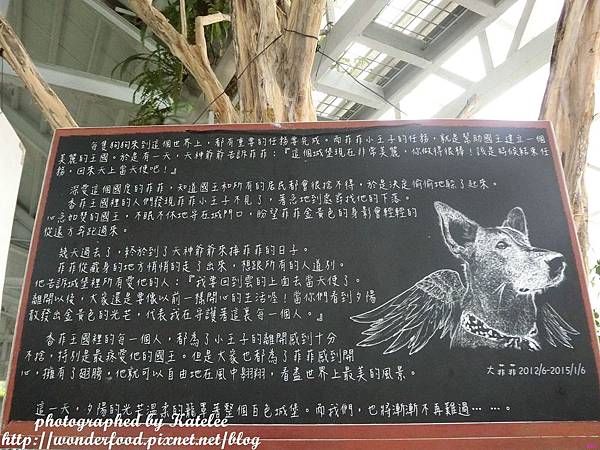 每隻狗狗來到這個世界上，都有重要的任務要完成，而菲菲小王子的任務，就是幫助國王建立一個
美麗的王國。於是有一天，天神爺爺告訴菲菲：『這個城堡現在非常美麗，你做得很棒！該是時候結束任
務，回來天上當天使吧！』
深愛這個國度的菲菲，知道國王和所有的居民都會很捨不得，於是決定偷偷地躲了起來。
香菲王國裡的人們發現菲菲小王子不見了，著急地到處尋找他的下落。
心急如焚的國王，不眠不休地守在城門口，盼望菲菲金黃色的身影會輕輕的
從遠方奔記過來。
幾天過去了，終於到了天神爺爺來接菲菲的日子。
菲菲從藏身的地方悄悄的走了出來，想跟所有的人道別。
他告訴城堡裡所有愛他的人：『我要回到雲的上面去當天使了。
離開以後，大家還是要像以前一樣開心的生活喔！當你們看到夕陽
散發出金黃色的光芒，代表我在守護著這裏每一個人。』
香菲王國裡的每一個人，都為了小王子的離開感到十分
不捨，特別是最疼愛他的國王。但是大家也都為了菲菲感到開
心，擁有了翅膀，他就可以自由地在風中翱翔，看盡世界上最美的風景。
大菲菲 2012/6-2015/1/6
這一天，夕陽的光芒溫柔的籠罩著整個白色城堡。而我們，也將漸漸不再難過……。
photographed by Katelee
http://wonderfood.pixnet.net/blog